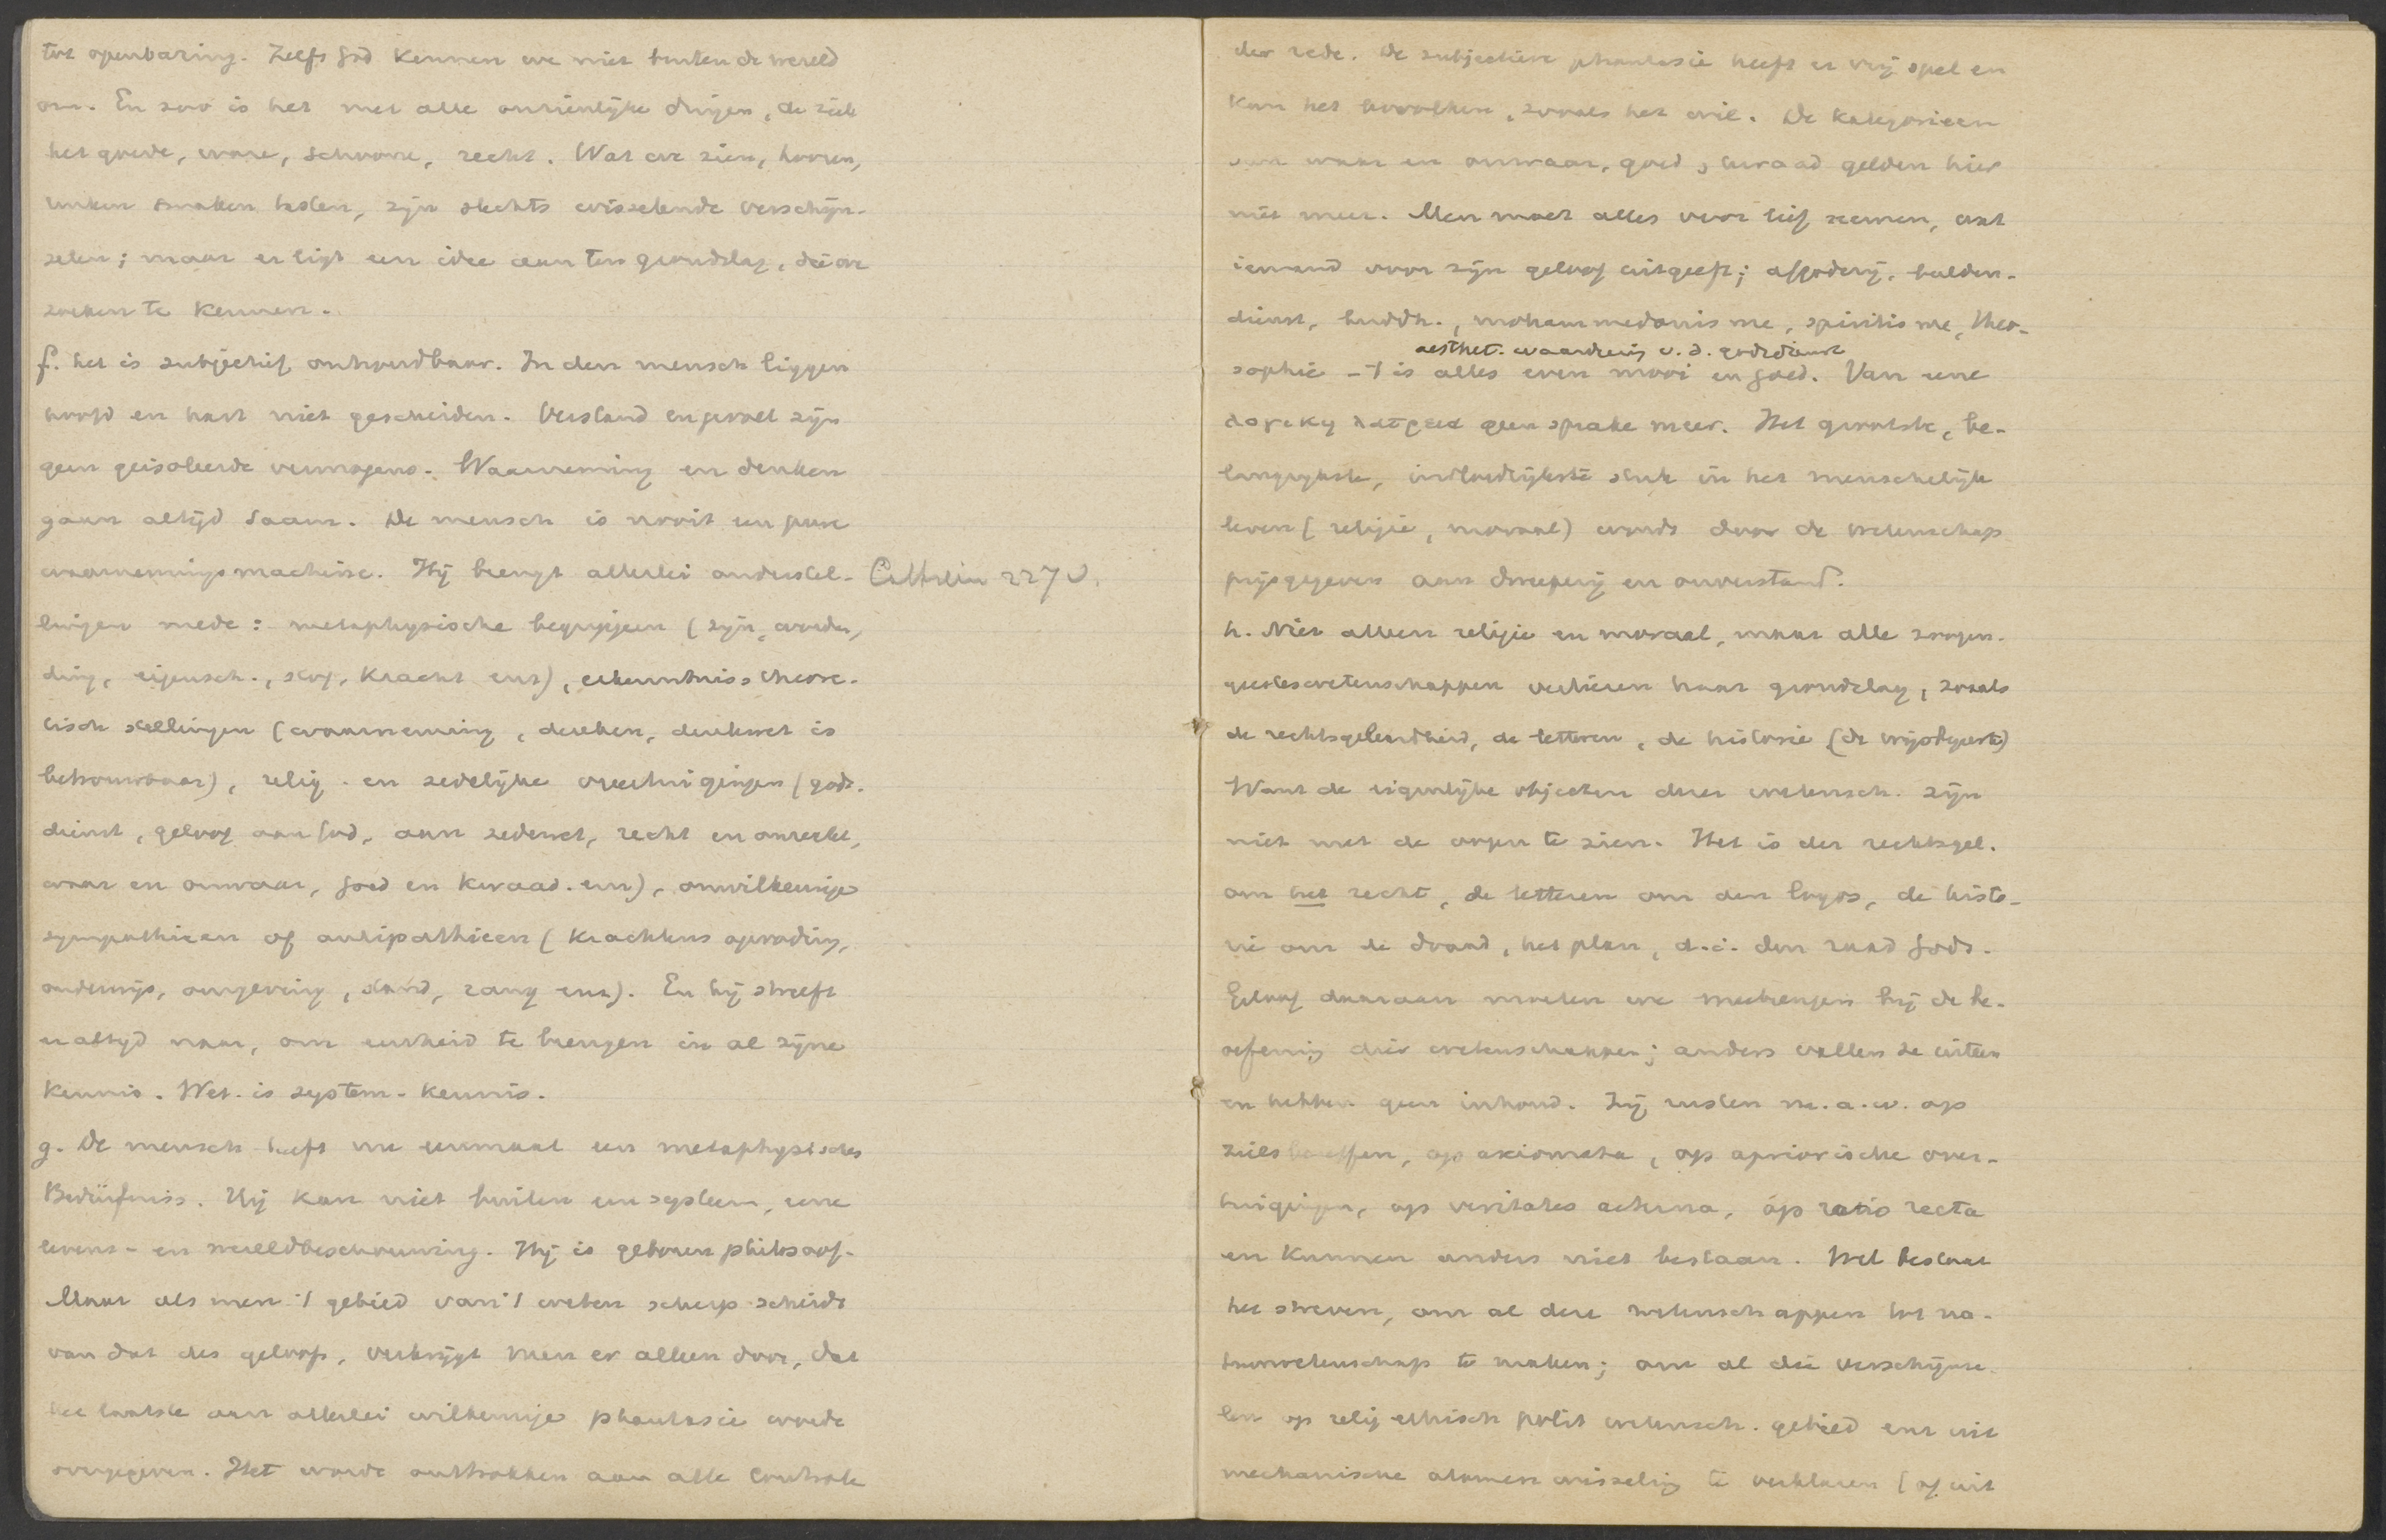 tot openbaring. Zelfs God kennen we niet buiten de wereld
om. En zoo is het met alle onzienlijke dingen, de ziel
het goede, ware, schoone, recht. Wat we zien, hooren,
ruiken smaken tasten, zijn slechts wisselende verschijn-
selen; maar er ligt een idee aan ten grondslag, die we
zoeken te kennen.
f. het is subjectief onhoudbaar. In den mensch liggen
hoofd en hart niet gescheiden. Verstand en gevoel zijn
geen geisoleerde vermogens. Waarneming en denken
gaan altijd saam. De mensch is nooit een pure
waarnemingsmachine. Hij brengt allerlei onderstel- Cathrein 227 v.
lingen mede: metaphysische begrippen (zijn, worden,
ding, eigensch., stof, kracht enz), erkenntnisstheore-
tisch stellingen (waarneming, denken, denkwet is
betrouwbaar), relig. en zedelijke overtuigingen (gods-
dienst, geloof aan God, aan zedewet, recht en onrecht,
waar en onwaar, goed en kwaad. enz), onwillekeurige
sympathieen of antipathieen (krachtens opvoeding,
onderwijs, omgeving, stand, rang enz). En hij streeft
er altijd naar, om eenheid te brengen in al zijne
kennis. Wet. is system-kennis.
g. De mensch heeft nu eenmaal een metaphysisches
Bedürfniss. Hij kan niet buiten een systeem, eene
levens- en wereldbeschouwing. Hij is geboren philosoof.
Maar als men 't gebied van 't weten scherp scheidt
van dat des geloofs, verkrijgt men er alleen door, dat
het laatste aan allerlei willekeurige phantasie worde
overgegeven. Het wordt onttrokken aan alle Controle
der rede. De subjectieve phantasie heeft er vrij spel en
kan het bevolken, zooals het wil. De kategorieen
van waar en onwaar, goed, kwaad gelden hier
niet meer. Men moet alles voor lief nemen, wat
iemand voor zijn geloof uitgeeft; afgoderij, beelden-
dienst, buddh., mohammedanisme, spiritisme, theo-
aesthet. waardeering v. d. godsdienst
sophie - 't is alles even mooi en goed. Van eene
geen sprake meer. Het grootste, be-
langrijkste, invloedrijkste stuk in het menschelijk
leven (religie, moraal) wordt door de wetenschap
prijsgegeven aan dweeperij en onverstand.
h. Niet alleen religie en moraal, maar alle zoogen.
geesteswetenschappen verliezen haar grondslag, zooals
de rechtsgeleerdheid, de letteren, de historie (de wijsbegeerte)
Want de eigenlijke objecten dezer wetensch. zijn
niet met de oogen te zien. Het is der rechtsgel.
om het recht, de letteren om den logos, de histo-
rie om de draad, het plan, d.i. den raad Gods.
Geloof daaraan moeten we meebrengen bij de be-
oefening dier wetenschappen; anders vallen ze uiteen
en hebben geen inhoud. Zij rusten m.a.w. op
op axiomata, op apriorische over-
tuigingen, op veritates aeterna, op ratio recta
en kunnen anders niet bestaan. Wel bestaat
het streven, om al deze wetenschappen tot na-
tuurwetenschap te maken; om al die verschijnse-
len op relig ethisch polit wetensch. gebied enz uit
mechanische atomen wisseling te verklaren (of uit